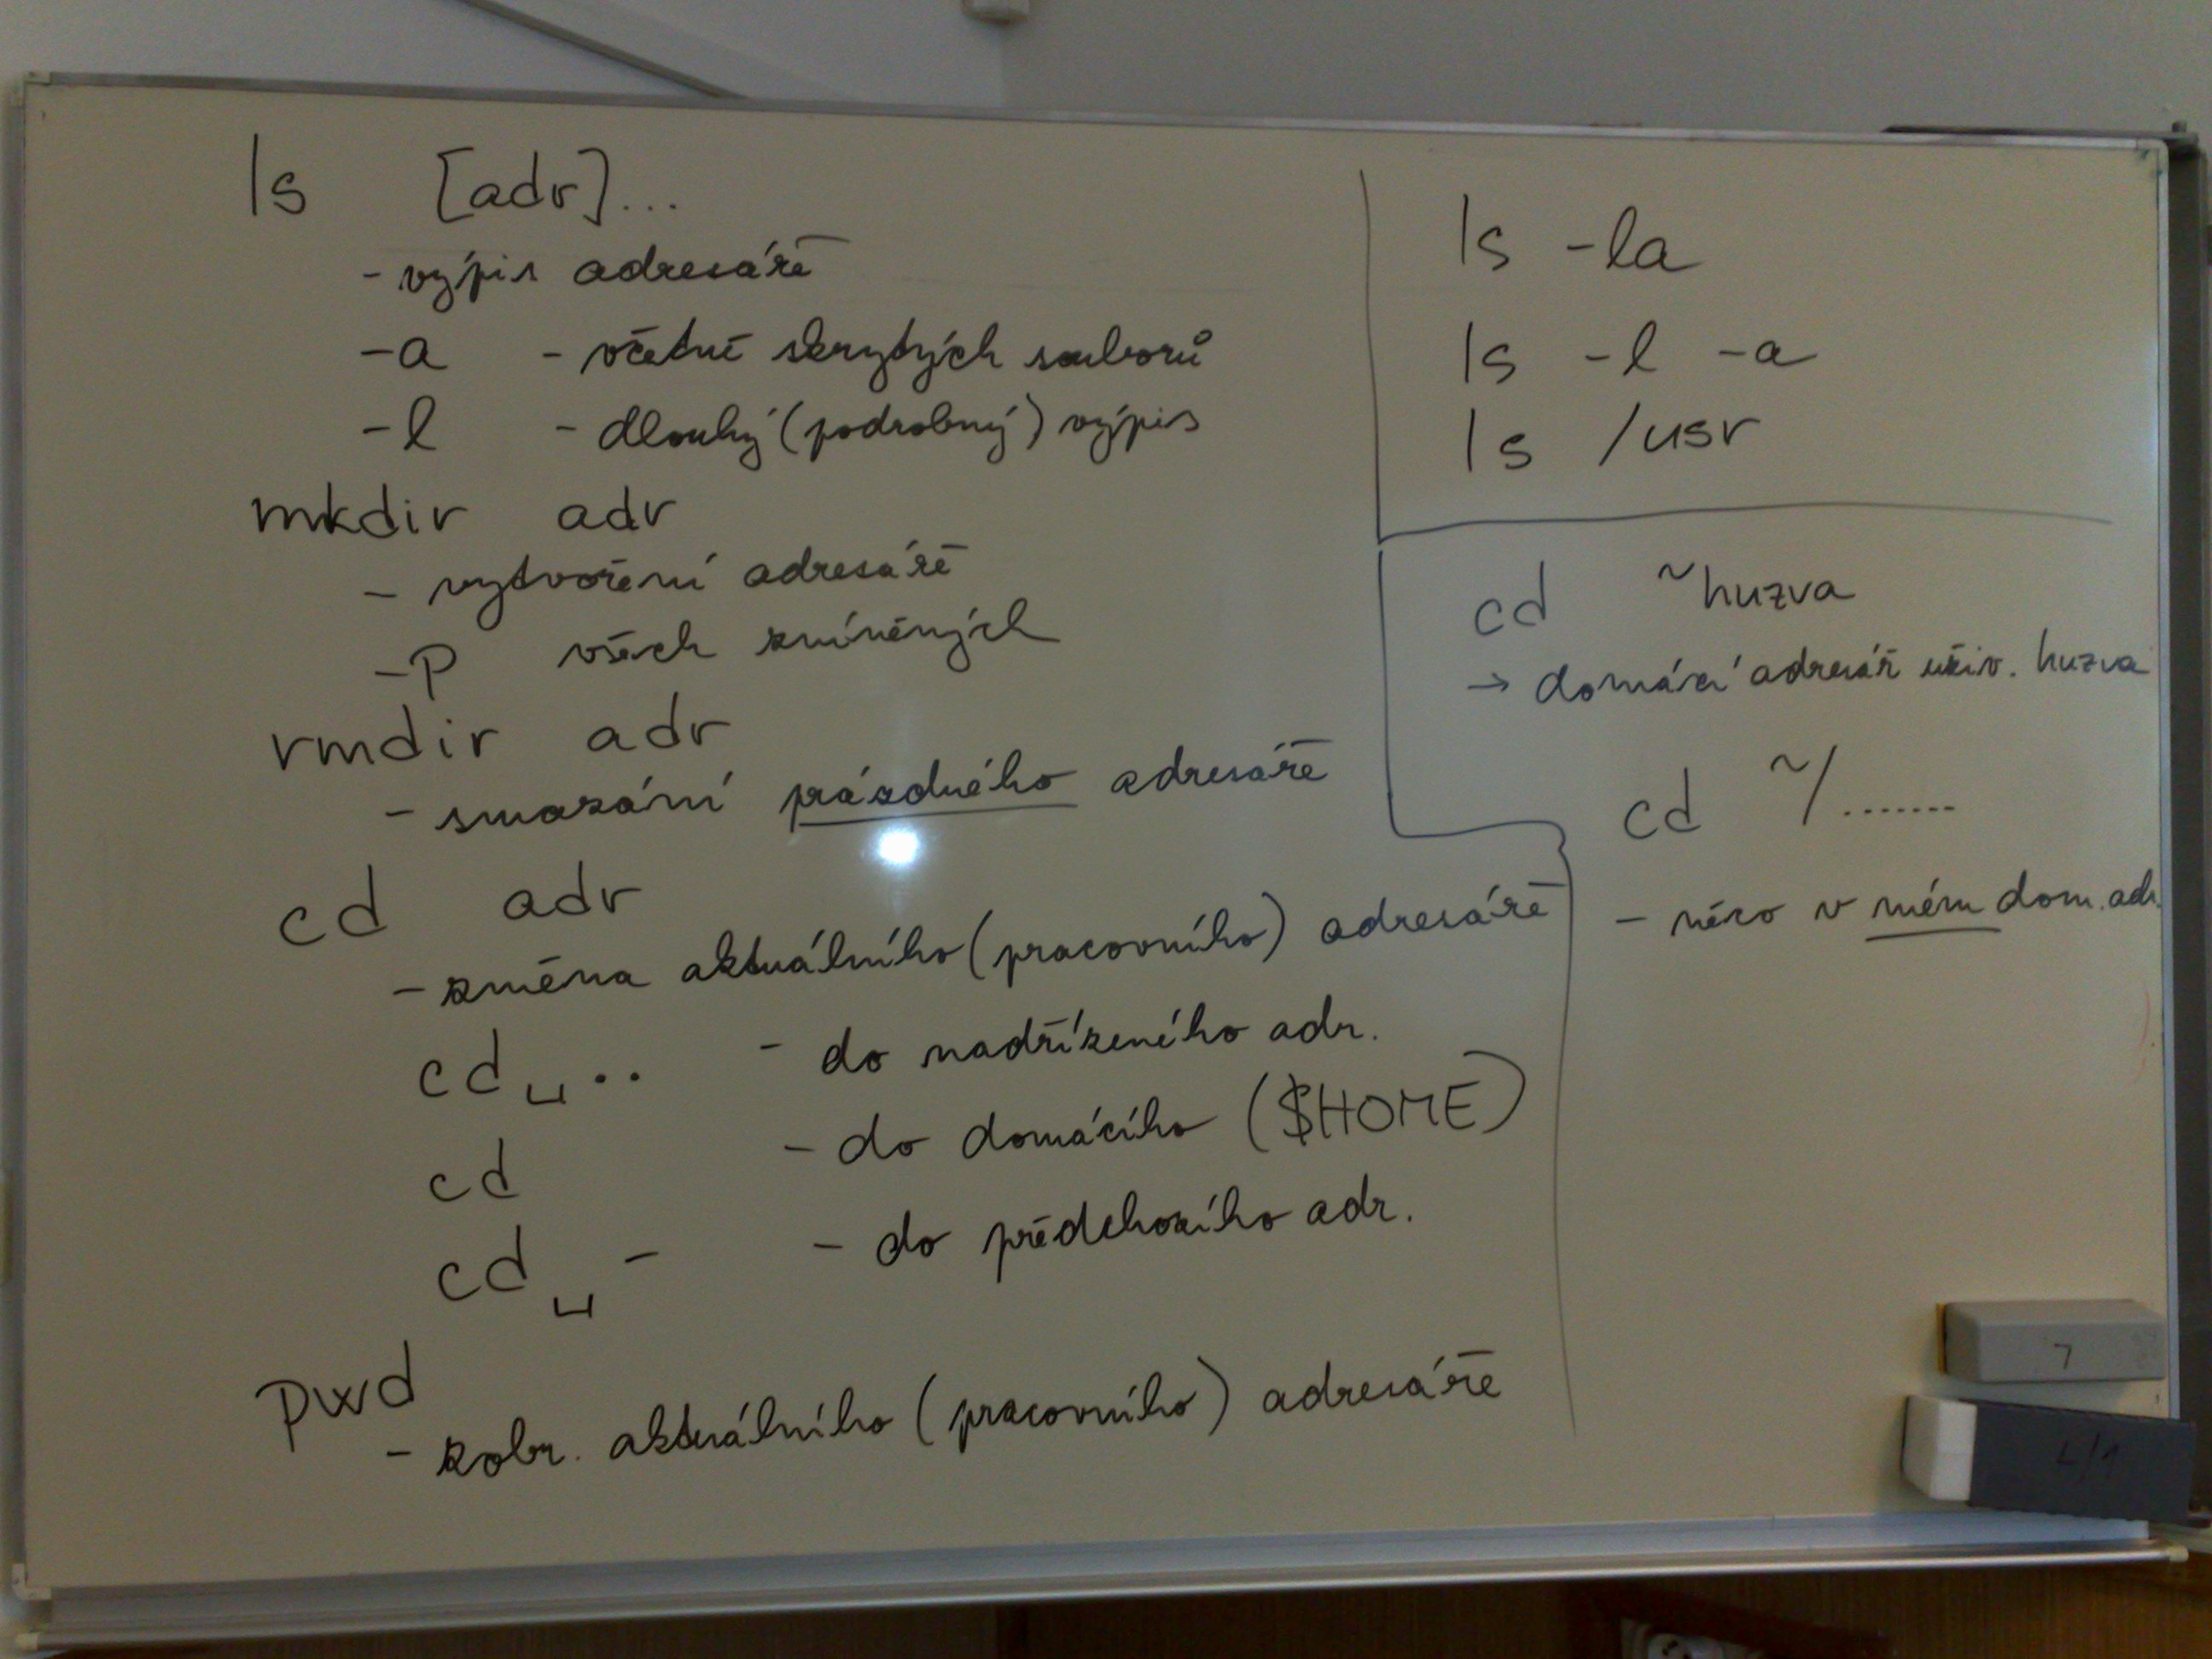 ls [adr]...
- výpis adresáře
-a - včetně skrytých souborů
-l - dlouhý (podrobný) výpis
mkdir adr
- vytvoření adresáře
-p všech zmíněných
rmdir adr
- smazání prázdného adresáře
cd adr
- změna aktuálního (pracovního) adresáře
cd␣.. - do nadřízeného adr.
cd - do domácího ($HOME)
cd␣- - do předchozího adr.
pwd
- zobr. aktuálního (pracovního) adresáře
ls -la
ls -l -a
ls /usr
cd ~huzva
→ domácí adresář uživ. huzva
cd ~/.......
- něco v mém dom. adr.
7
L/1